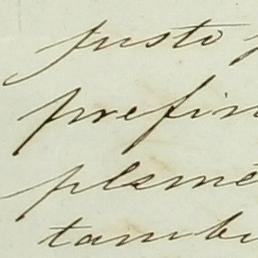 justo
prefir
plsme
tambi